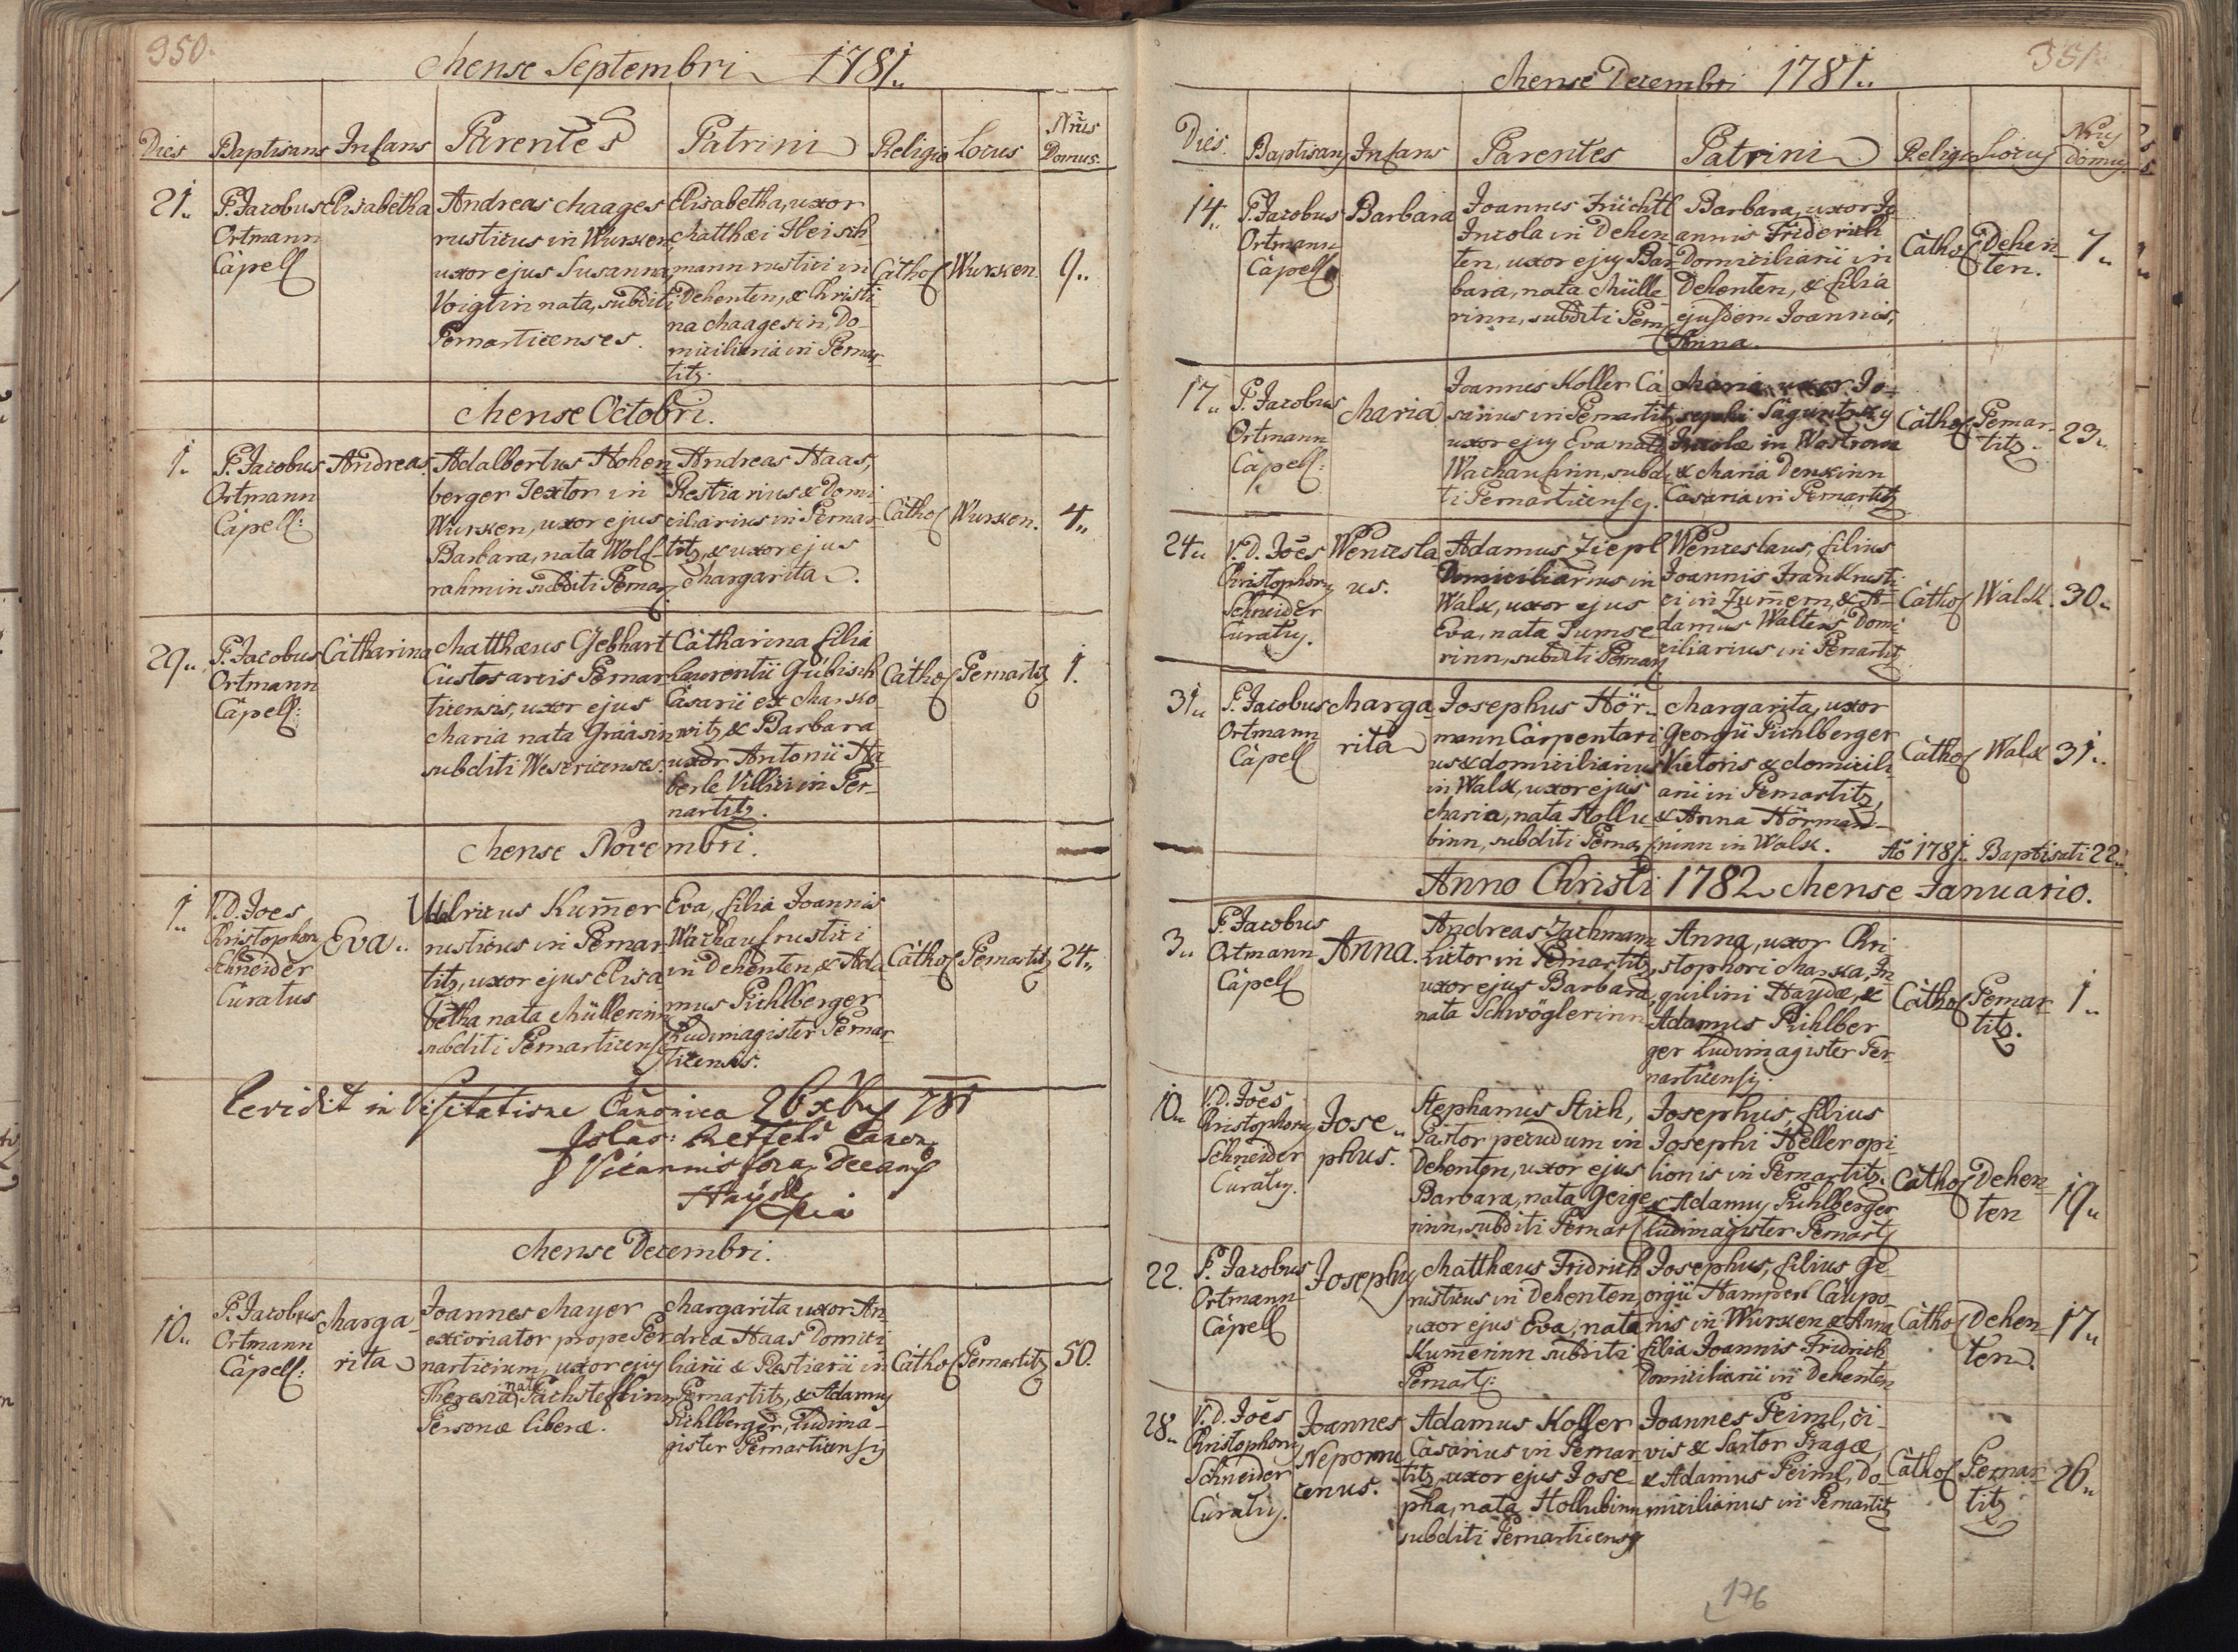 350.
Mense Septembri 1781.
Dies Baptisans Infans Parentes Patrini Religio Locus Nrus Domus.
21. P. Jacobus Ortmann Capell
Elisabetha
Andreas Maages
rusticus in Wursken
uxor ejus Susanna
Voigtin nata, subditi
Pernarticenses.
Elisabetha, uxor
Matthæi Fleisch-
mann rustici in
Dehenten, & Christi-
na Maagesin, Do-
miciliaria in Pernar-
titz.
Cathol Wursken. 9.
Mense Octobri.
1. P. Jacobus Ortmann Capell:
Andreas.
Adalbertus Hohen-
berger Textor in
Wursken, uxor ejus
Barbara, nata Wolf-
rahmin subditi Pernar
Andreas Haas,
Restiarius & Domi-
ciliarius in Pernar-
titz, & uxor ejus
Margarita.
Cathol Wursken. 4.
29. P. Jacobus Ortmann Capell:
Catharina
Matthæus Gebhart
Custos arcis Pernar-
ticensis, uxor ejus
Maria nata Graasin
subditi Wesericenses.
Catharina filia
Laurentii Gubisch
Casarii ex Marsko-
witz & Barbara
uxor Antonii Ha-
berle Villici in Per-
nartitz.
Cathol Pernartitz 1.
Mense Novembri.
1. V. D. Joes Christophorus Schneider Curatus
Eva.
Udalricus Kummer
rusticus in Pernar-
titz, uxor ejus Elisa-
betha nata Müllerinn
subditi Pernarticens
Eva, filia Joannis
Wachauf rustici
in Dehenten, & Ada-
mus Pichlberger
Ludimagister Pernar-
ticensis.
Cathol Pernartitz 24.
in Visitatione Canonica 26 xbris 781
Vicarius fora Decanus
Haÿd
Mense Decembri.
10. P. Jacobus Ortmann Capell:
Marga-
rita
Joannes Mayer
excoriator prope Per-
narticium, uxor ejus
Theresia nata Pachsteflinn
Personæ liberæ.
Margarita uxor An-
dreæ Haas Domici-
liarii & Restiarii in
Pernartitz, & Adamus
Pichlberger, Ludima-
gister Pernarticensis
Cathol Pernartitz 50.
351.
Mense Decembri 1781.
Dies. Baptisans Infans Parentes Patrini Religio Locus Nrus domus
14. P. Jacobus Ortmann Capell
Barbara
Joannes Früchtl
Incola in Dehen-
ten, uxor ejus Bar-
bara, nata Mülle-
rinn, subditi Pern
Barbara, uxor Jo-
annis Friderich
Domiciliarii in
Dehenten, & filia
ejusdem Joannis,
Anna.
Cathol Dehen-
ten. 7.
17. P. Jacobus Ortmann Capell:
Maria
Joannes Koller Ca-
sarius in Pernartitz
uxor ejus Eva nata
Wachaufinn, subdi-
ti Pernarticenses.
Maria uxor Jo-
sephi
Incolæ in Wostrowa
& Maria Denskinn
Casaria in Pernartitz
Cathol Pernar-
titz. 23.
24. V. D. Joës Christophorus Schneider Curatus.
Wencesla-
us.
Adamus Ziepl
Domiciliarius in
Walk, uxor ejus
Eva, nata Tumse-
rinn, subditi Pernar
Wenceslaus, filius
Joannis Frank rusti-
ci in Zummern, & A-
damus Walters Domi-
ciliarius in Pernartitz
Cathol Walk. 30.
31. P. Jacobus Ortmann Capell
Marga-
rita
Josephus Hör-
mann Carpentari-
us & domiciliarius
in Walk, uxor ejus
Maria, nata Hollu-
binn, subditi Pernar
Margarita, uxor
Georgii Pichlberger
Vietoris & domicili-
arii in Pernartitz,
& Anna Hörman-
ninn in Walk.
Cathol Walk 31.
Aō 1781. Baptisati 22.
Anno Christi 1782 Mense Januario.
3. P. Jacobus Ortmann Capell
Anna.
Andreas Zachmann
Lictor in Pernartitz,
uxor ejus Barbara,
nata Schwöglerinn
Anna, uxor Chri-
stophori Marska, In-
quilini Haydæ, &
Adamus Pichlber-
ger Ludimagister Per-
narticensis.
Cathol Pernar-
titz. 1.
10. V. D. Joës Christophorus Schneider Curatus.
Jose-
phus.
Stephanus Stich,
Pastor pecudum in
Dehenten, uxor ejus
Barbara, nata Geige-
rinn, subditi Pernar
Josephus, filius
Josephi Heller opi-
lionis in Pernartitz.
& Adamus Pichlberger
Ludimagister Pernart
Cathol Dehen-
ten 19.
22. P. Jacobus Ortmann Capell
Josephus
Matthæus Fridrich
rusticus in Dehenten
uxor ejus Eva, nata
Kumerinn subditi
Pernart:
Josephus, filius Ge-
orgii Hamperl Caupo-
nis in Wursken & Anna
filia Joannis Fridrich
Domiciliarii in Dehenten
Cathol Dehen-
ten. 17.
28. V. D. Joës Christophorus Schneider Curatus.
Joannes
Nepomu-
cenus.
Adamus Koller
Casarius in Pernar-
titz, uxor ejus Jose-
pha, nata Hollubinn
subditi Pernarticenses
Joannes Peiml, ci-
vis & Sartor Pragæ,
& Adamus Peiml, Do-
miciliarius in Pernartitz
Cathol Pernar-
titz 26.
176